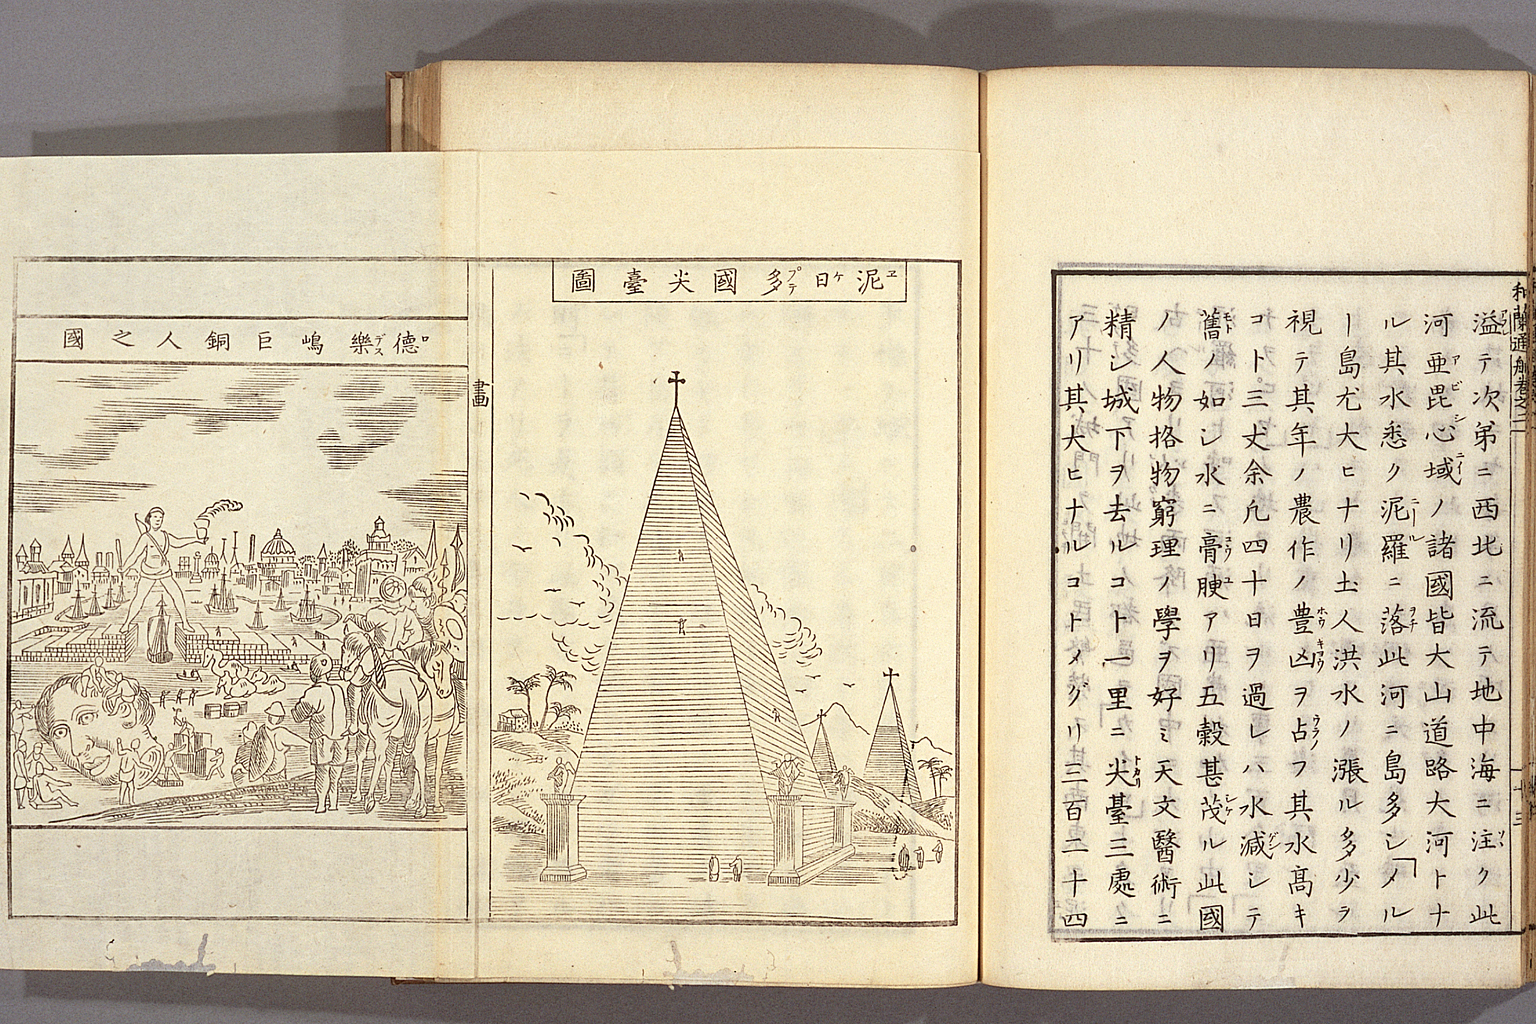 溢テ次第ニ西北ニ流テ地中海ニ注ク此
河亜毘心域ノ諸國皆大山道路大河トナ
ル其水悉ク泥羅ニ落此河ニ島多シメル
ー島尤大ヒナリ土人洪水ノ漲ル多少ラ
視テ其年ノ農作ノ豊凶ヲ占フ其水髙キ
コト三丈余凢四十日ヲ過レハ水減シテ
舊ノ如シ水ニ膏腴アリ五穀甚茂ル此國
ノ人物挌物窮理ノ學ヲ好ミ天文醫術ニ
精シ城下ヲ去ルコト一里ニ尖臺三處ニ
アリ其大ヒナルコトメグリ三百二十四
泥日多國尖臺圖
畫
德樂嶋巨銅人之國